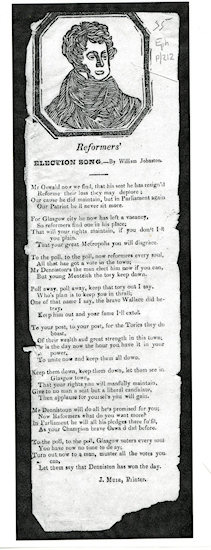 35
Eph
P/212
Reformers'
ELECTION SONG.—By William Johnston.
Mr Oswald now we find, that his seat he has resign'd
Reforme their loss they may deplore;
Our cause he did maintain, but in Parliament again
Our Patriot he il never sit more.
For Glasgow city he now has left a vacancy,
So reformers find one in his place;
That will your rights maintain, if you don't I ll
you plain,
That your great Metropolis you will disgrace.
To the poll, to the poll, now reformers every soul,
All that has got a vote in the town;
Mr Dennistoun's the man elect him now if you can,
But young Monteith the tory keep down.
Poll away, poll away, keep that tory out I say.
Who's plan is to keep you in thrall;
One of that name I say, the brave Wallace did be-
tray,
Keep him out and your fame I'll extol.
To your post, to your post, for the Tories they do
boast,
Of their wealth and great strength in this town;
is the day now the hour you have it in your
power,
To unite now and keep them all down.
Keep them down, keep them down, let them see in
Glasgow town,
That your rights you will manfully maintain,
Give to no man a seat but a liberal candidate,
Then applause for yourselv's you will gain.
Mr Dennistoun will do all he's promised for you;
Now Reformers what do you want more?
In Parliament he will all his pledges there fulfil,
As your Champion brave Oswald did before.
To the poll, to the poll, Glasgow voters every soul
You have now no time to delay;
Turn out now to a man, muster all the votes you
can,
Let them say that Dennistoun has won the day.
J. Muse, Printer.